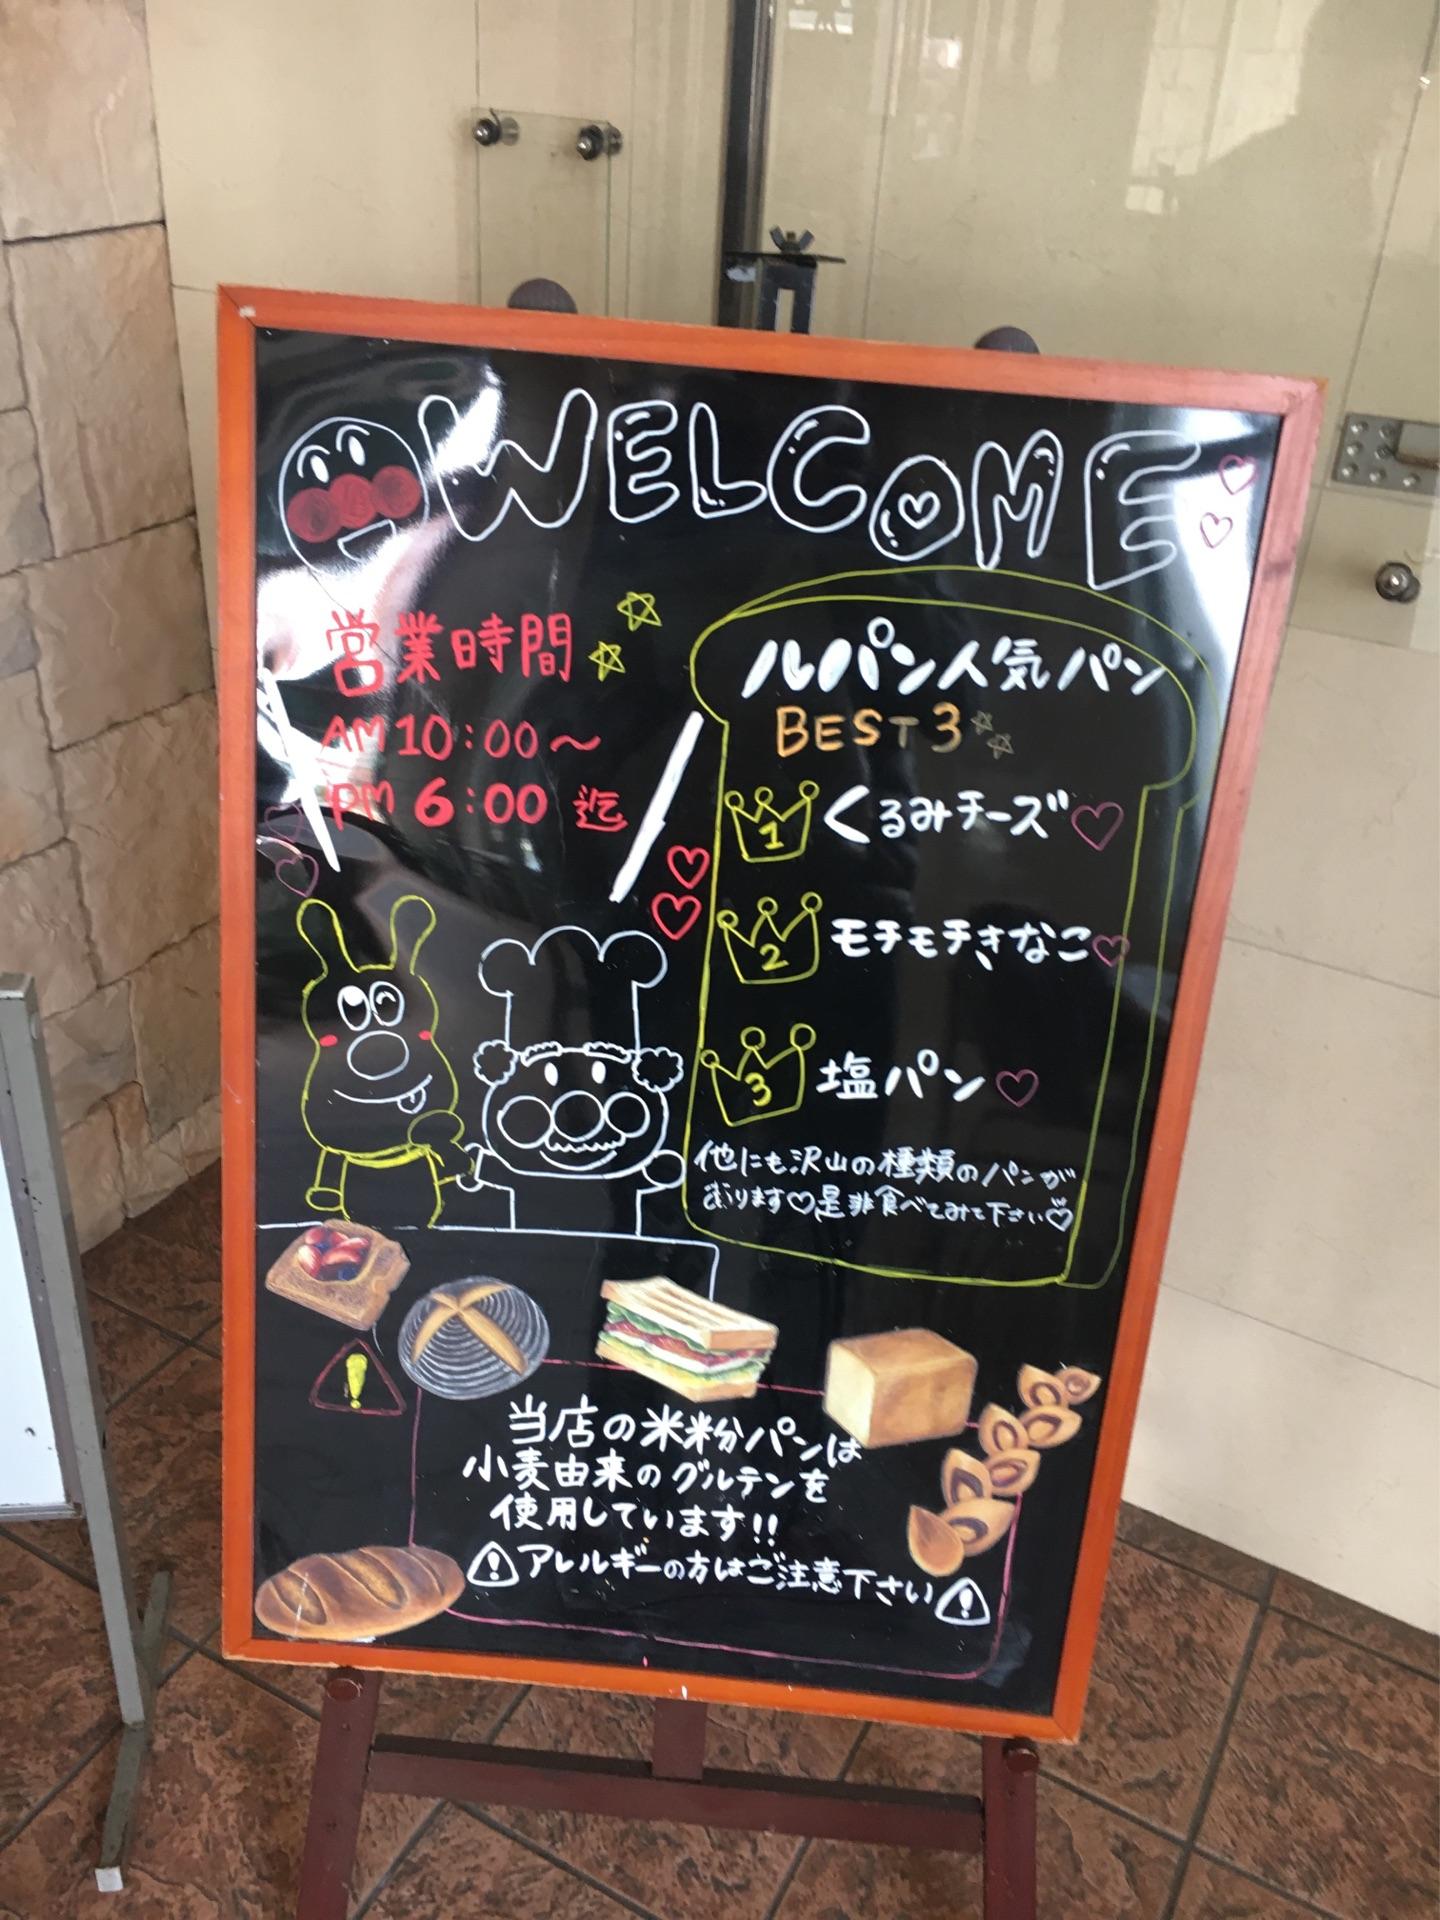 WELCOME
営業時間
AM10:00〜
PM 6:00 迄
ルパン人気パン
BEST3
1 くるみチーズ♡
2 モチモチきなこ♡
3 塩パン♡
他にも沢山の種類のパンが
あります♡是非食べてみて下さい♡
当店の米粉パンは
小麦由来のグルテンを
使用しています!!
⚠アレルギーの方はご注意下さい⚠